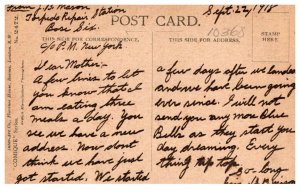 From B Mason
Torpedo Repair Station
Base Six.
c/o P.M. New York
Sept 22/1918
POST CARD.
THIS SIDE FOR CORRESPONDENCE.
THIS SIDE FOR ADDRESS.
10365
STAMP
HERE
Dear Mother:-
A few lines to let
you know that al
am eating three
meals a day. You
see we have a new
address. Now dont
think we have just
got started. We started
a few days after we landed
and we have been going
ever since. I will not
send you any more Blue
Bells as they start you
day dreaming. Every
thing tip top
So long
"COMIQUE" Series.
No. 2472.